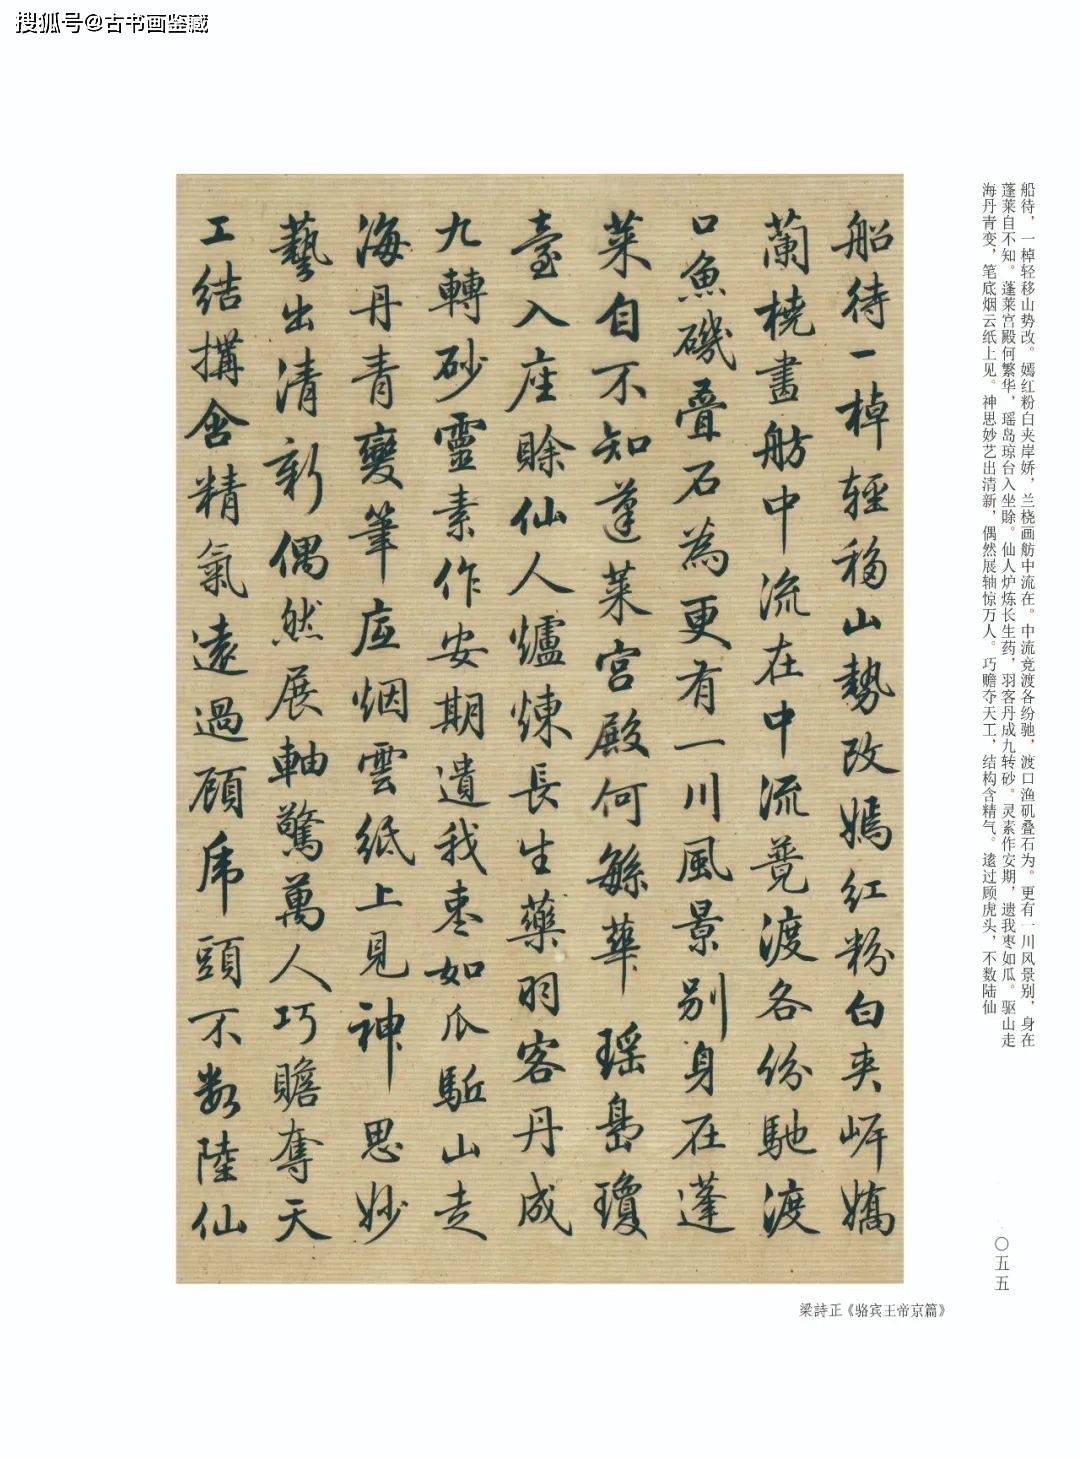 搜狐号@古书画鉴藏
船待，一棹轻移山势改。嫣红粉白夹岸娇，兰桡画舫中流在。中流竞渡各纷驰，渡口渔矶叠石为。更有一川风景别，身在
蓬莱自不知。蓬莱宫殿何繁华，瑶岛琼台入坐赊。仙人炉炼长生药，羽客丹成九转砂。灵素作安期，遗我枣如瓜。驱山走
海丹青变，笔底烟云纸上见。神思妙艺出清新，偶然展轴惊万人。巧赡夺天工，结构含精气。逺过顾虎头，不数陆仙
船待一棹輕移山勢改嫣紅粉白夾岸嬌
蘭橈畫舫中流在中流競渡各份馳渡
口魚磯叠石為更有一川風景别身在蓬
萊自不知蓬萊宮殿何繁華瑶島瓊
臺入座賖仙人爐煉長生藥羽客丹成
九轉砂靈素作安期遺我枣如瓜駈山走
海丹青變筆底烟雲紙上見神思妙
藝出清新偶然展軸驚萬人巧贍奪天
工結搆含精氣遠過顧虎頭不數陸仙
〇五五
梁詩正《骆宾王帝京篇》